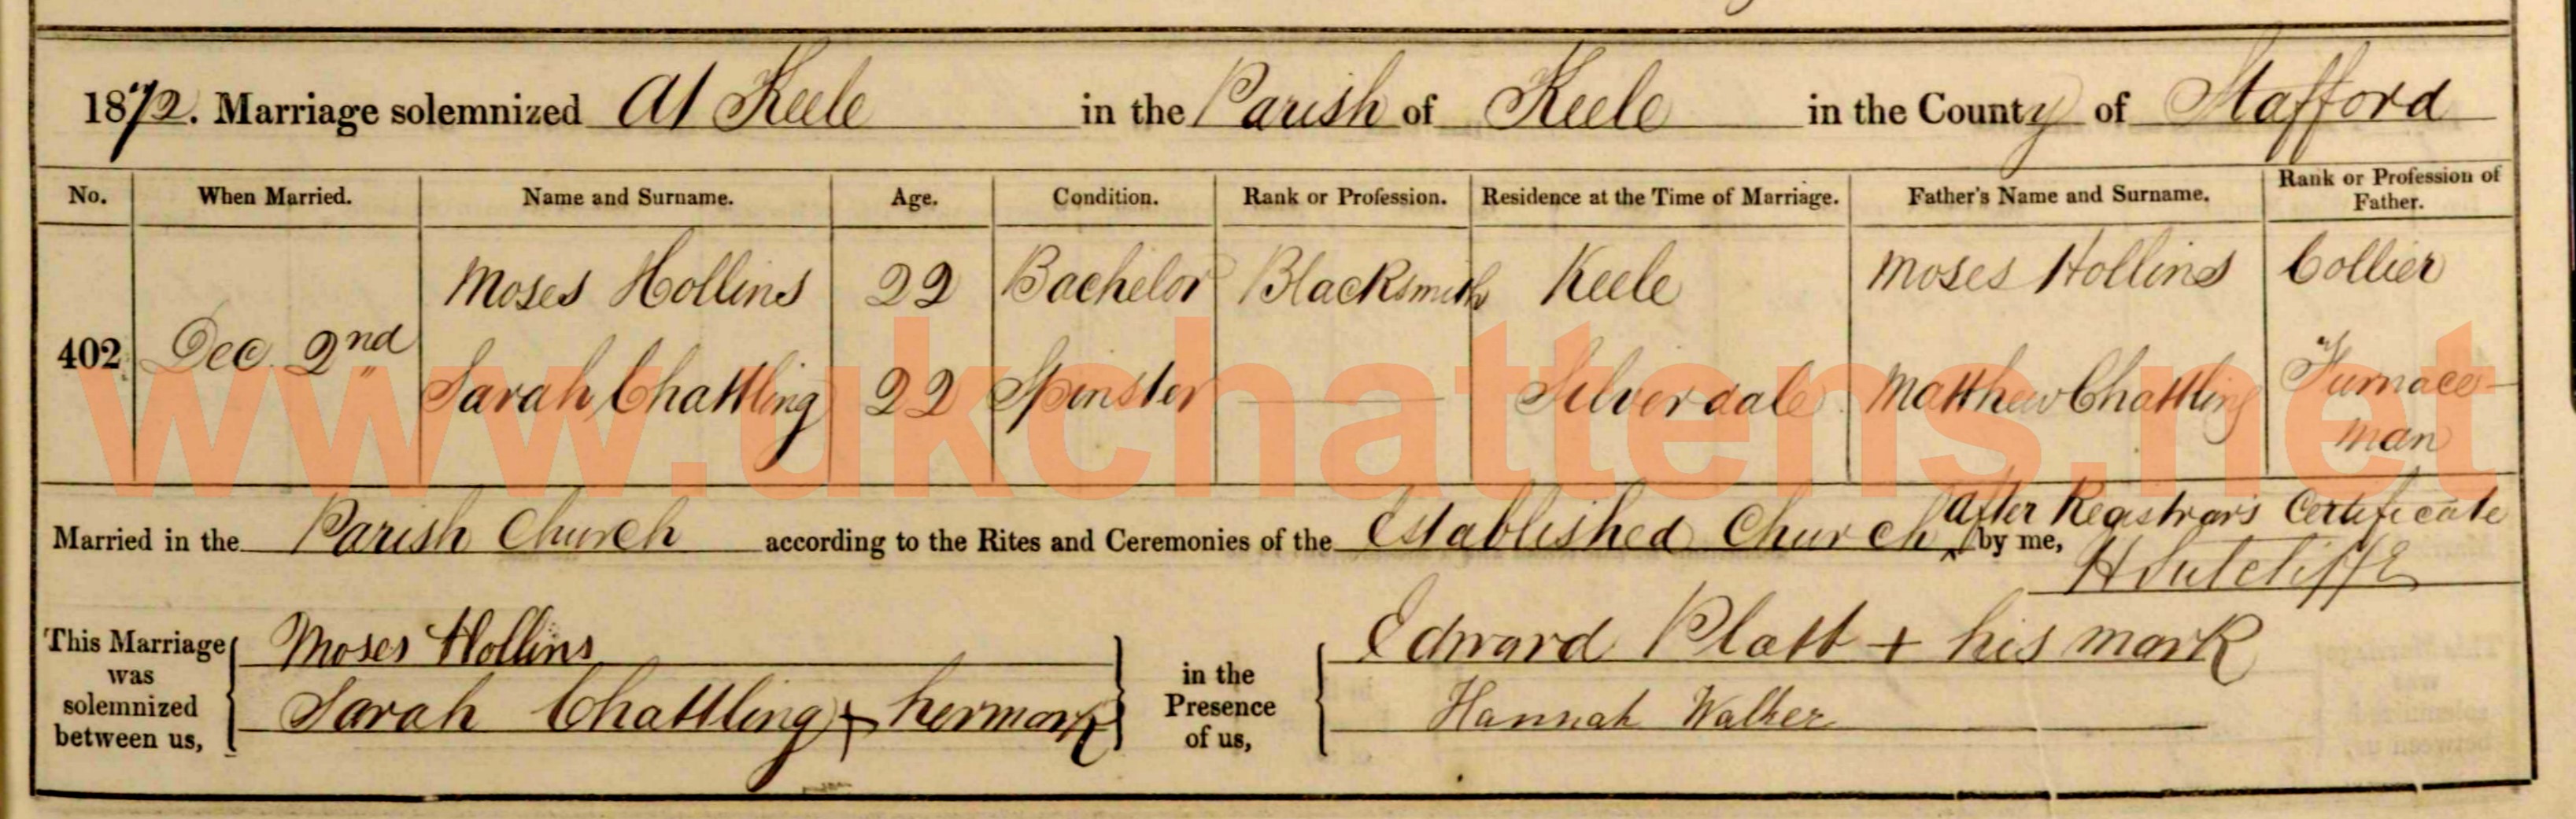 1872. Marriage solemnized At Keele in the Parish of Keele in the County of Stafford
No. When Married. Name and Surname. Age. Condition. Rank or Profession. Residence at the Time of Marriage. Father's Name and Surname. Rank or Profession of Father.
Moses Hollins 22 Bachelor Blacksmith Keele Moses Hollins Collier
402 Dec. 2nd
Sarah Chattling 22 Spinster Silverdale Matthew Chattling Furnace-
man
www.ukchattens.net
after Registrar's Certificate
Married in the Parish Church according to the Rites and Ceremonies of the Established Church by me,
H Sutcliffe
This Marriage was solemnized between us,
Moses Hollins
Sarah Chattling + her mark
in the Presence of us,
Edward Platt + his mark
Hannah Walker